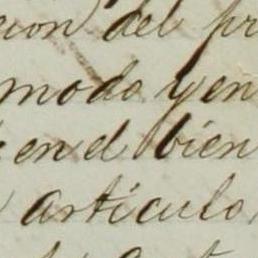 cion del pr
modo y en
en el bien
articulo